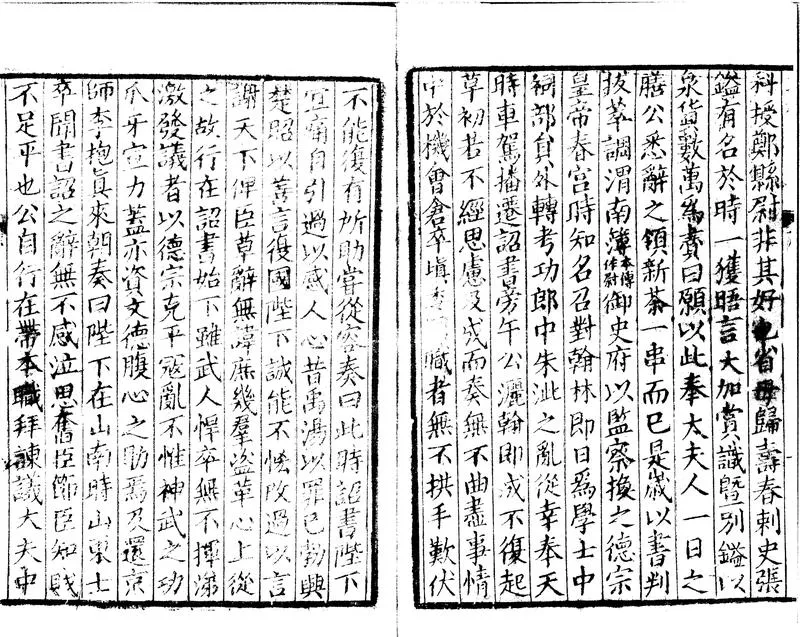 科授鄭縣尉非其好也省母歸壽春刺史張
鎰有名於時一獲晤言大加賞識暨別鎰以
泉貨數萬爲賮曰願以此奉太夫人一日之
膳公悉辭之領新茶一串而已是歲以書判
拔萃調渭南簿本傳作尉御史府以監察換之德宗
皇帝春宮時知名召對翰林即日爲學士由
祠部員外轉考功郎中朱泚之亂從幸奉天
時車駕播遷詔書旁午公灑翰即成不復起
草初若不經思慮及成而奏無不曲盡事情
中於機會倉卒塡 職者無不拱手歎伏
不能復有所助嘗從容奏曰此時詔書陛下
宜痛自引過以感人心昔禹湯以罪己勃興
楚昭以善言復國陛下誠能不悋改過以言
謝天下俾臣草辭無諱庶幾羣盜革心上從
之故行在詔書始下雖武人悍卒無不揮涕
激發議者以德宗克平寇亂不惟神武之功
爪牙宣力蓋亦資文德腹心之助焉及還京
師李抱眞來朝奏曰陛下在山南時山東士
卒聞書詔之辭無不感泣思奮臣節臣知賊
不足平也公自行在帶本職拜諫議大夫中